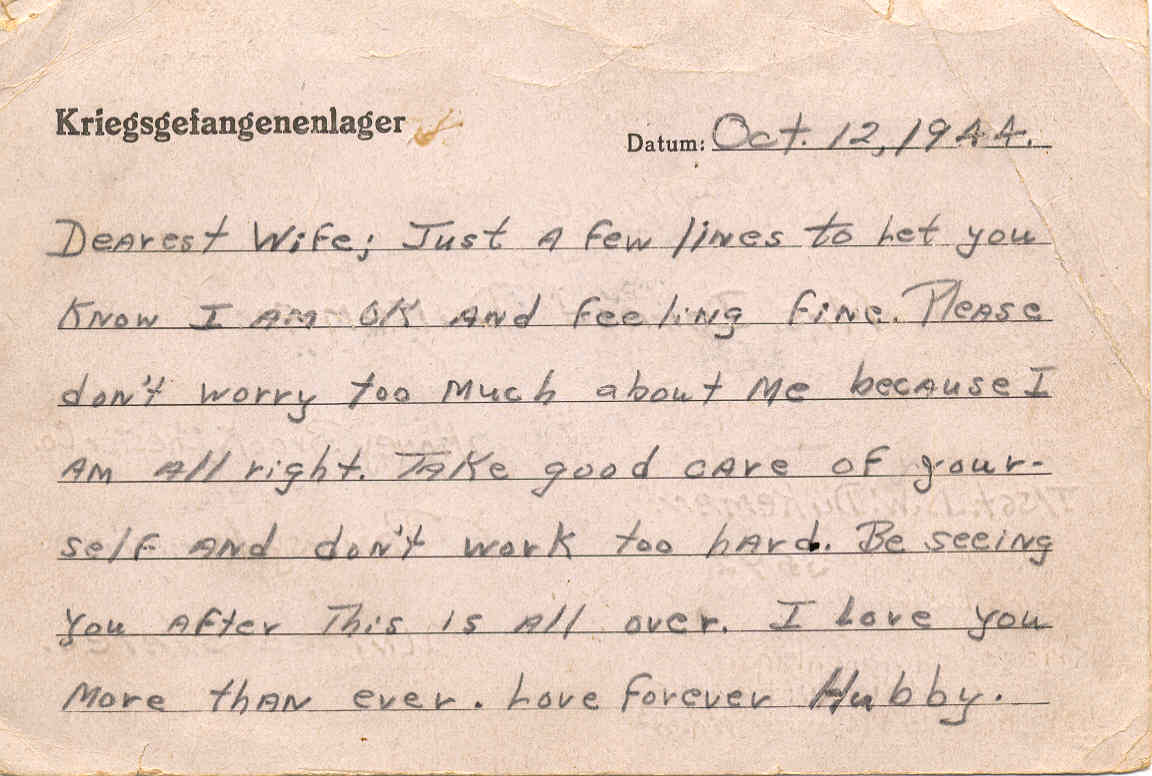 Kriegsgefangenenlager
Datum: Oct. 12, 1944.
Dearest Wife; Just a few lines to let you
know I am OK and feeling fine. Please
don't worry too much about me because I
am all right. Take good care of your-
self and don't work too hard. Be seeing
you after this is all over. I love you
more than ever. Love forever Hubby.